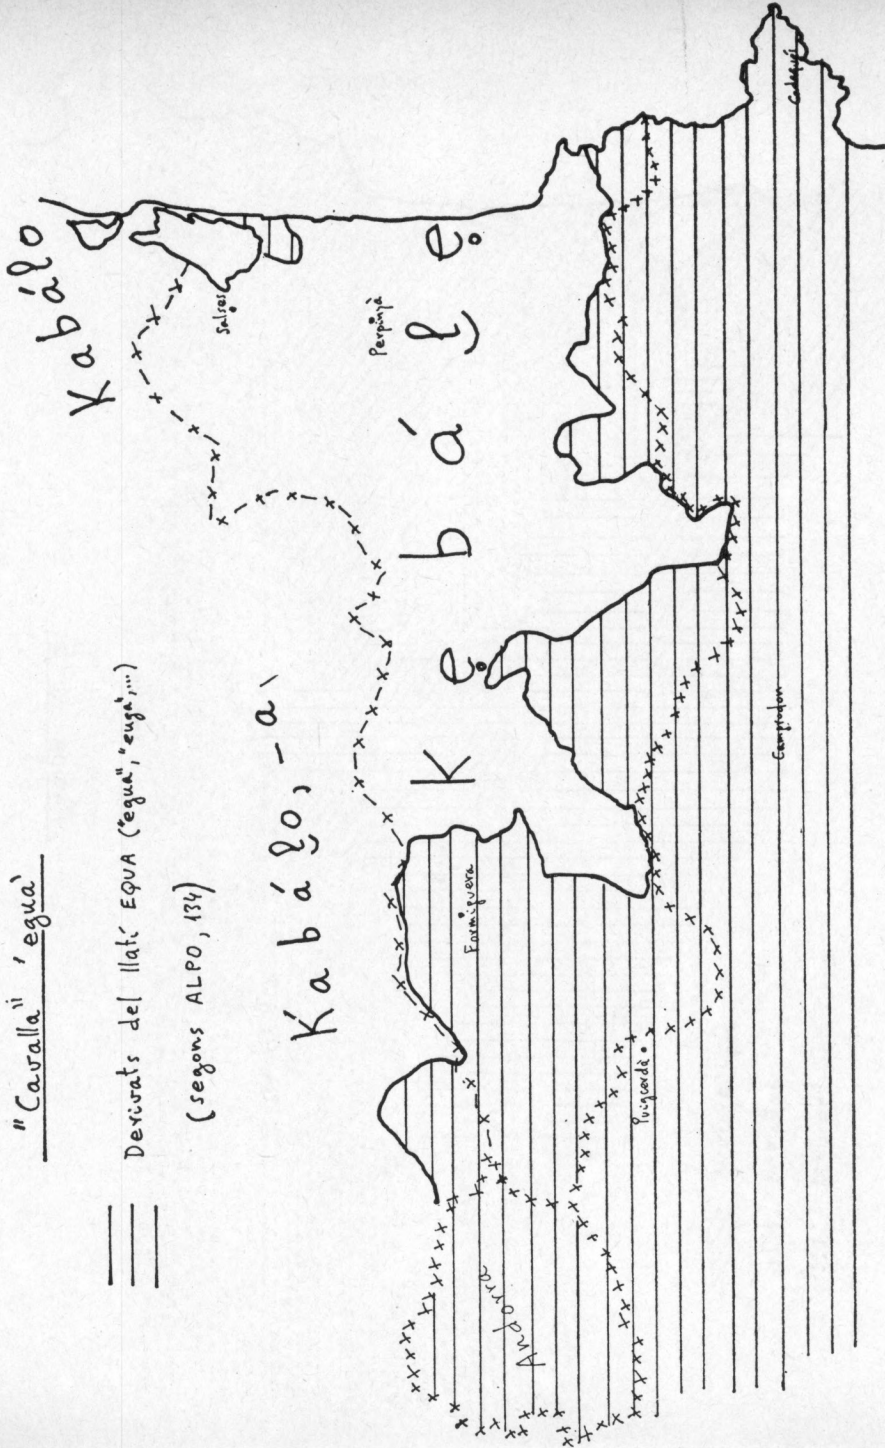 "Cavalla" 'egua'
Derivats del llatí EQUA ("egua", "euga",...)
(segons ALPO, 134)
Kabálo
Kabálo, -a,
Kẹbálẹ
Salses
Perpinyà
Formiguera
Andorra
Puigcerdà
Camprodon
Cadaqués